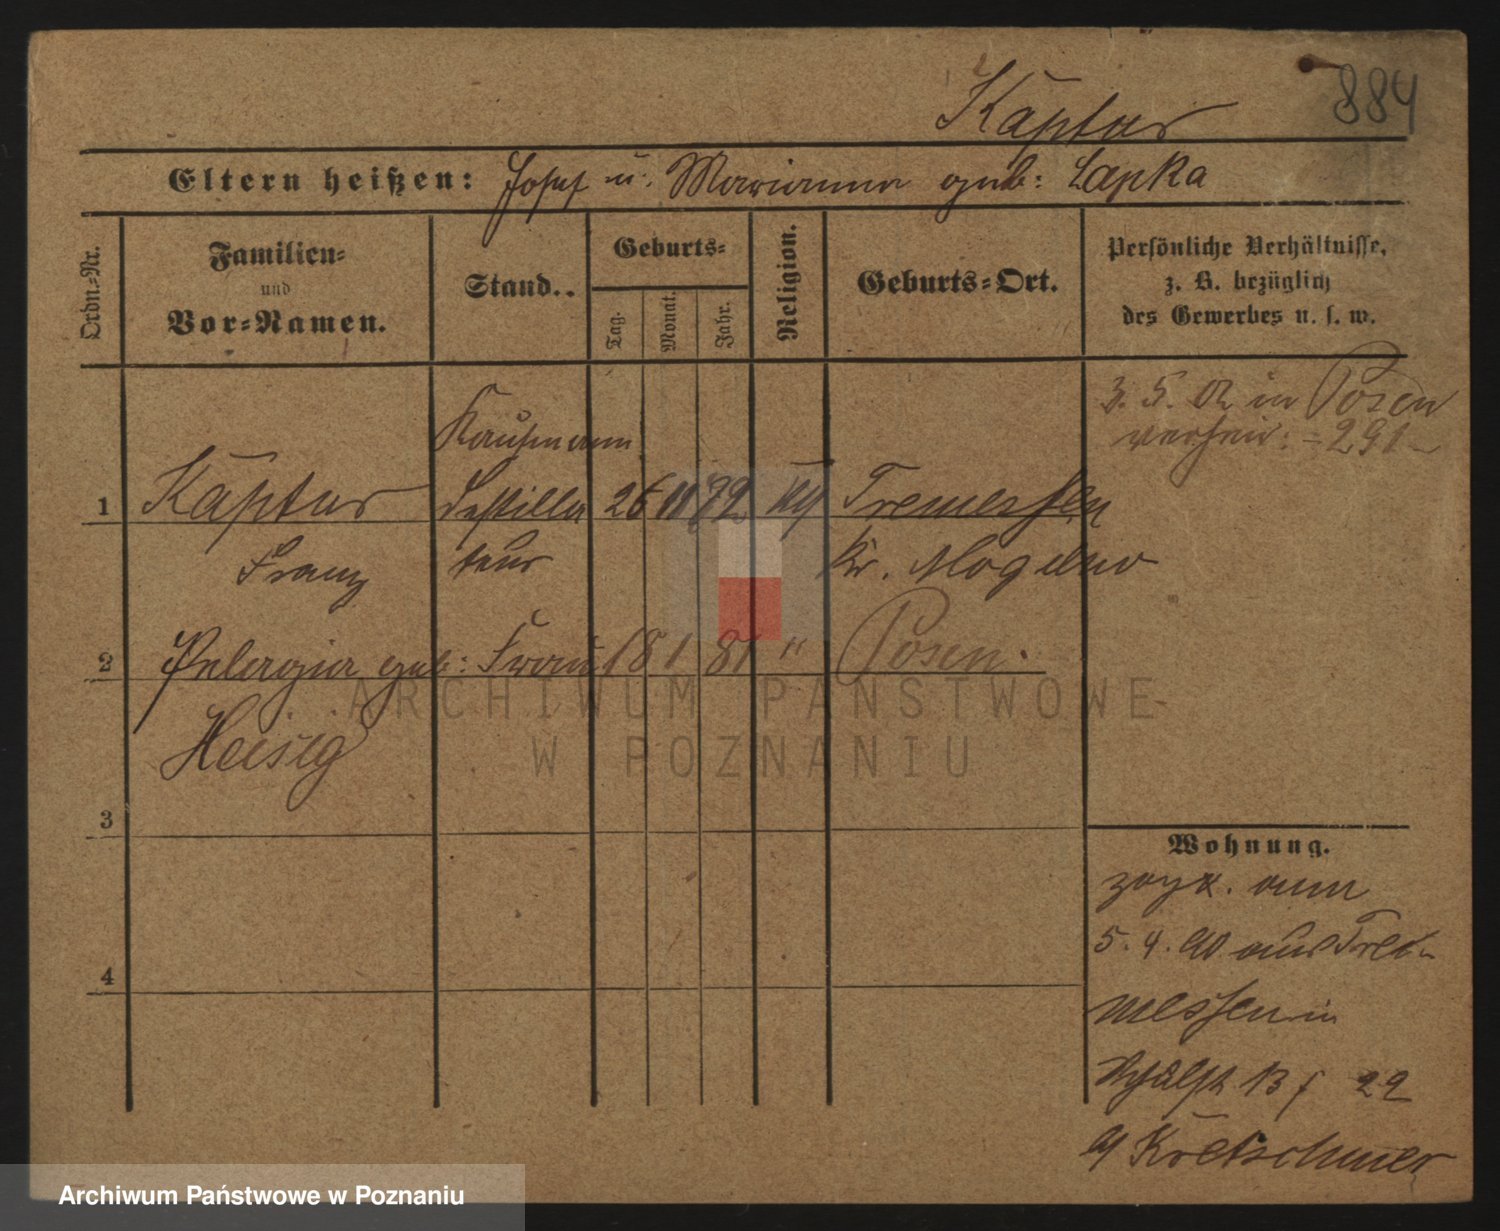 884
Kaptur
Eltern heißen: Josef u. Marianna geb: Lapka
Ordn.-Nr.
Familien-
und
Vor-Namen.
Stand..
Geburts-
Tag.
Monat.
Jahr.
Religion.
Geburts-Ort.
Persönliche Verhältnisse,
z. B. bezüglich
des Gewerbes u. s. w.
3. 5. 02 in Posen
verheir: =291
Kaufmann
1 Kaptur Destilla 26 11 72 Tremessen
Franz teur Kr. Mogilno
2 Pelagia geb: Frau 18 1 81 " Posen.
Heisig
3
4
Wohnung.
zugz. am
5. 4. 90 aus Tre-
messen in
13 / 22
Kretschmer
ARCHIWUM PAŃSTWOWE
W POZNANIU
Archiwum Państwowe w Poznaniu